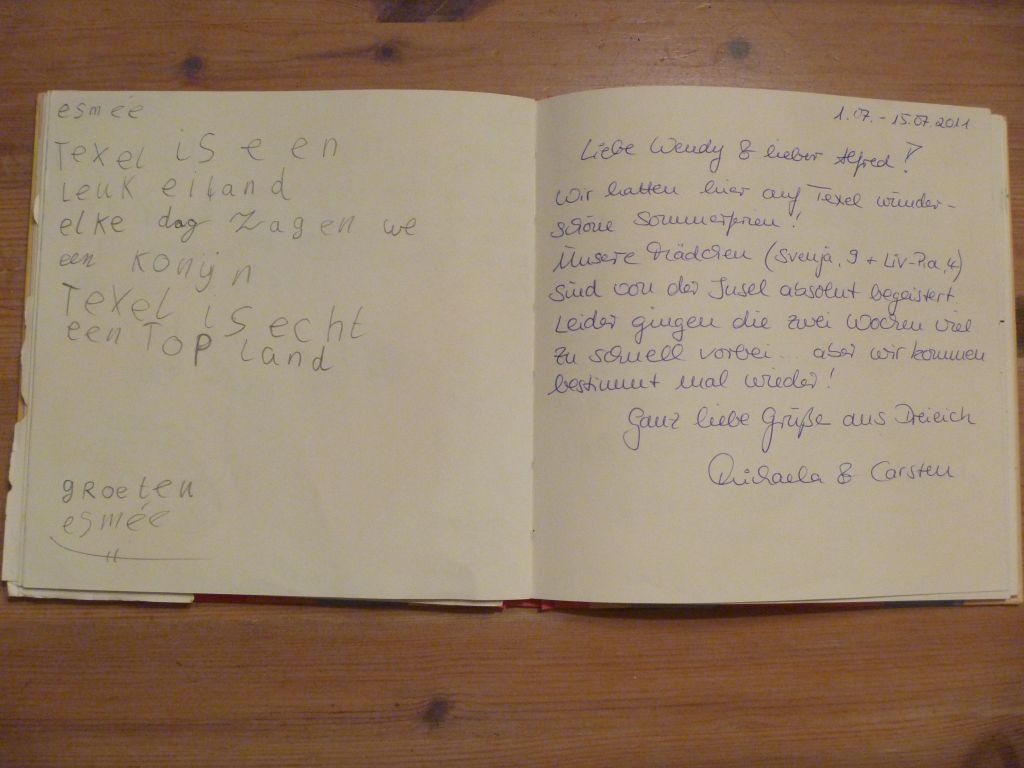 esmée
Texel is een
Leuk eiland
elke dag zagen we
een konijn
Texel is echt
een Top land
groeten
esmée
1.07. - 15.07.2011
Liebe Wendy & lieber Alfred!
Wir hatten hier auf Texel wunder-
schöne Sommerferien!
Unsere Mädchen (Svenja, 9 + Liv-Pia, 4)
sind von der Insel absolut begeistert.
Leider gingen die zwei Wochen viel
zu schnell vorbei... aber wir kommen
bestimmt mal wieder!
Ganz liebe Grüße aus Dreieich
Michaela & Carsten